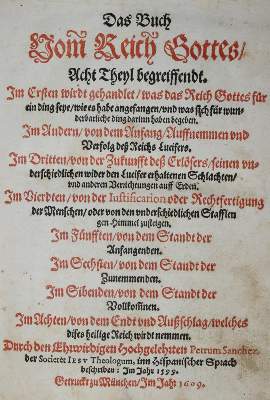 Das Buch
Vom Reich Gottes/
Acht Theyl begreiffendt.
Im Ersten wirdt gehandlet / was das Reich Gottes für
ein ding seye / wie es habe angefangen / vnd was sich für wun-
derbarliche ding darinn haben begeben.
Im Andern / von dem Anfang / Auffnemmen vnd
Verfolg deß Reichs Lucifers.
Im Dritten / von der Zukunfft deß Erlösers / seinen vn-
derschidlichen wider den Lucifer erhaltenen Schlachten /
vnd anderen Verrichtungen auff Erden.
Im Vierdten / von der Iustification oder Rechtfertigung
der Menschen / oder von den vnderschiedlichen Stafflen
gen Himmel zusteigen.
Im Fünfften / von dem Standt der
Anfangenden.
Im Sechsten / von dem Standt der
Zunemmenden.
Im Sibenden / von dem Standt der
Vollkom̃nen.
Im Achten / von dem Endt vnd Außschlag / welches
dises heilige Reich wirdt nemmen.
Durch den Ehrwirdigen Hochgelehrten Petrum Sanchez
der Societet IESV Theologum, inn Hispanischer Sprach
beschriben: Im Jahr 1599.
Getruckt zu München / Im Jahr 1609.